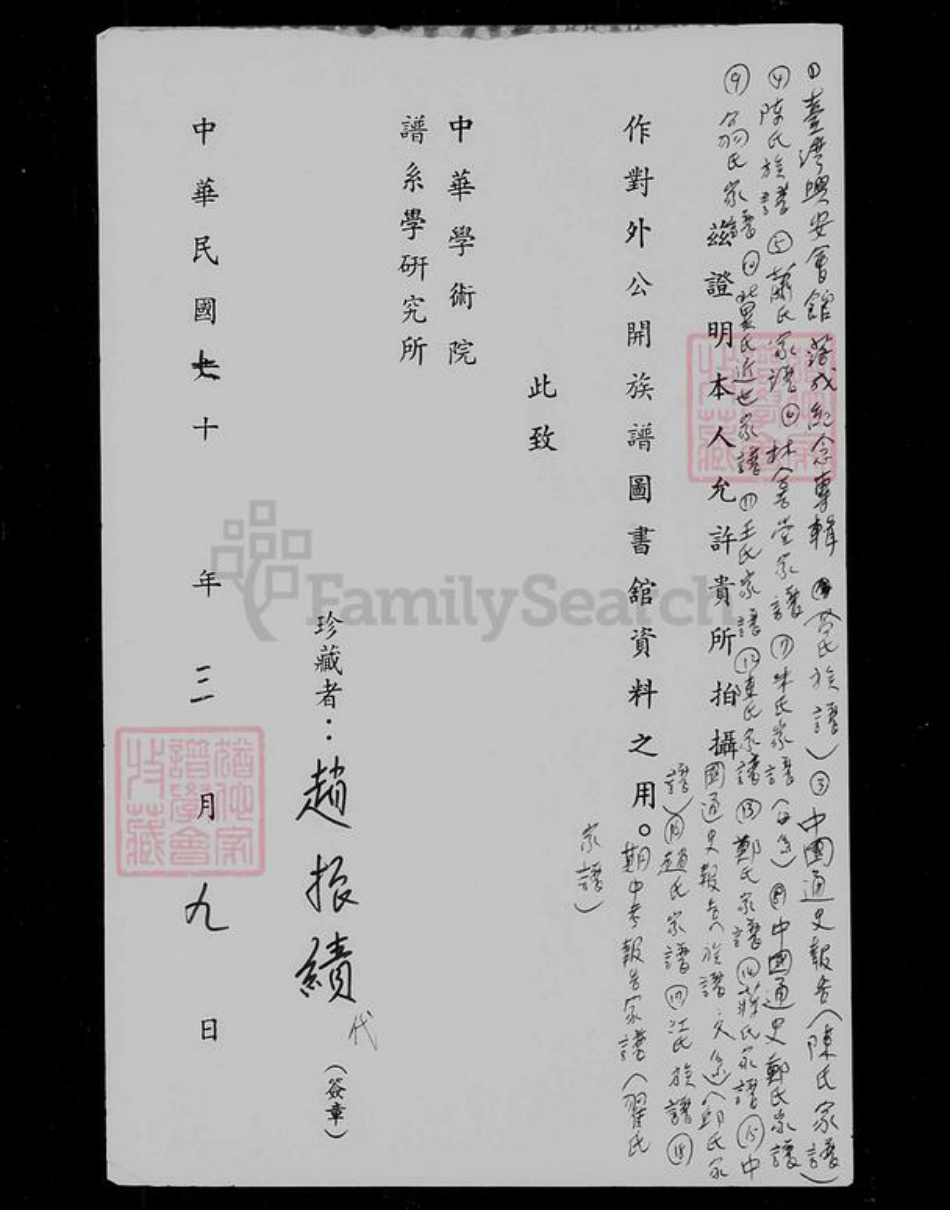 ①臺灣興安會館落成紀念專輯②(黃氏族譜)③中國通史報告(陳氏家譜)
④陳氏族譜⑤蕭氏家譜⑥林合堂家譜⑦朱氏家譜(母系)⑧中國通史鄭氏家譜
⑨翁氏家譜⑩冀氏近世家譜⑪王氏家譜⑫東氏家譜⑬鄭氏家譜⑭蔣氏家譜⑮中
國通史報告(族譜父系)(邱氏家
譜)⑯趙氏家譜⑰江氏族譜⑱
期中考報告家譜(翟氏
家譜)
茲證明本人允許貴所拍攝
作對外公開族譜圖書館資料之用。
此致
中華學術院
譜系學研究所
珍藏者:趙振績代(簽章)
中華民國七十年三月九日
FamilySearch